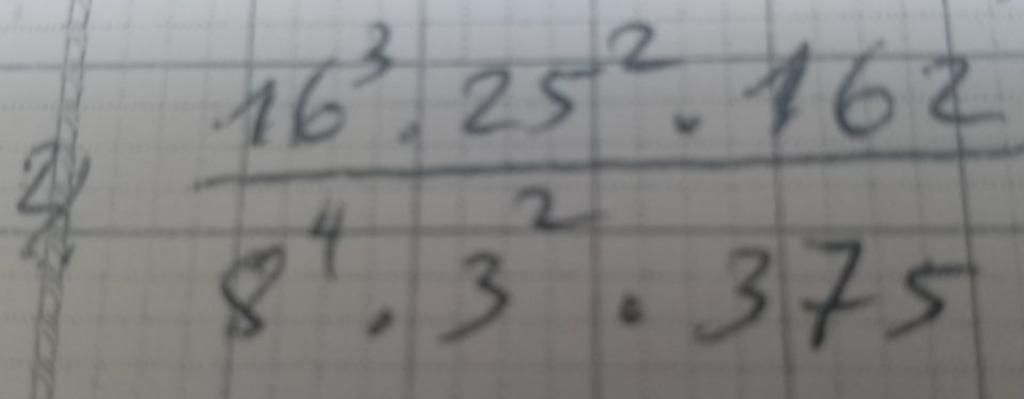 2) 16³ · 25² · 162
8⁴ · 3² · 375